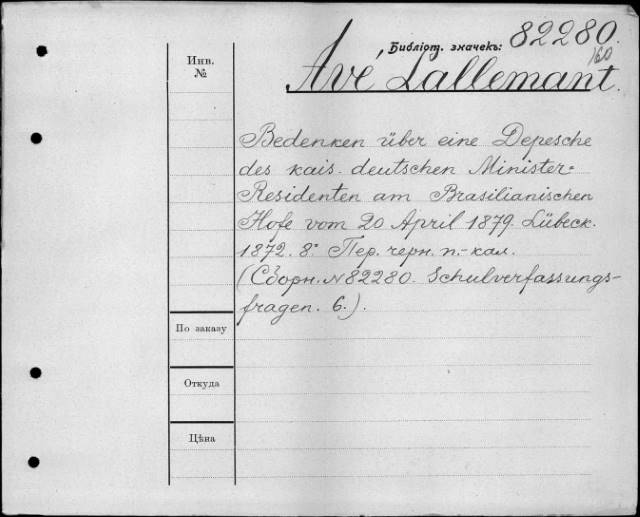 Библіот. значекъ: 82280.
160
Avé Lallemant.
Инв.
№
Bedenken über eine Depesche
des kais. deutschen Minister-
Residenten am Brasilianischen
Hofe vom 20 April 1879. Lübeck.
1872. 8° Пер. черн. п.-кал.
(Сборн. №82280. Schulverfassungs-
fragen. 6.).
По заказу
Откуда
Цѣна